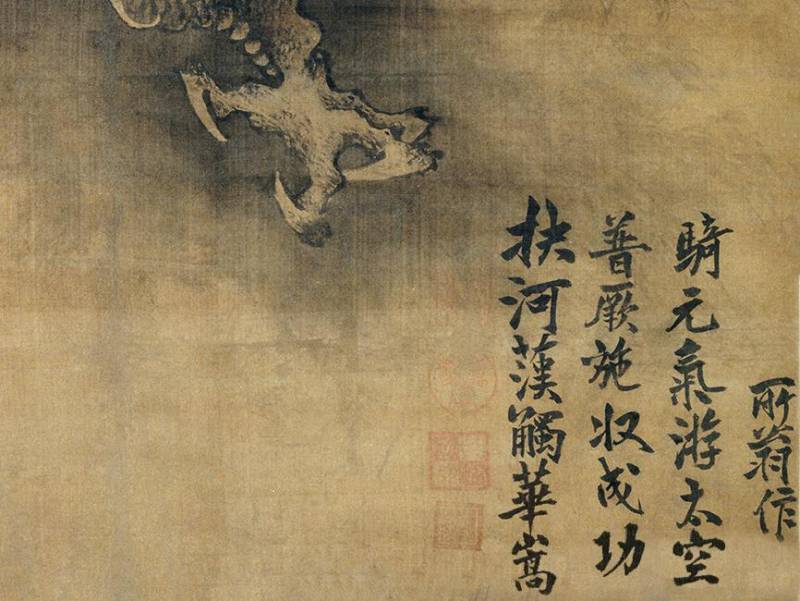 扶河漢觸華嵩
普厥施収成功
騎元氣游太空
所翁作